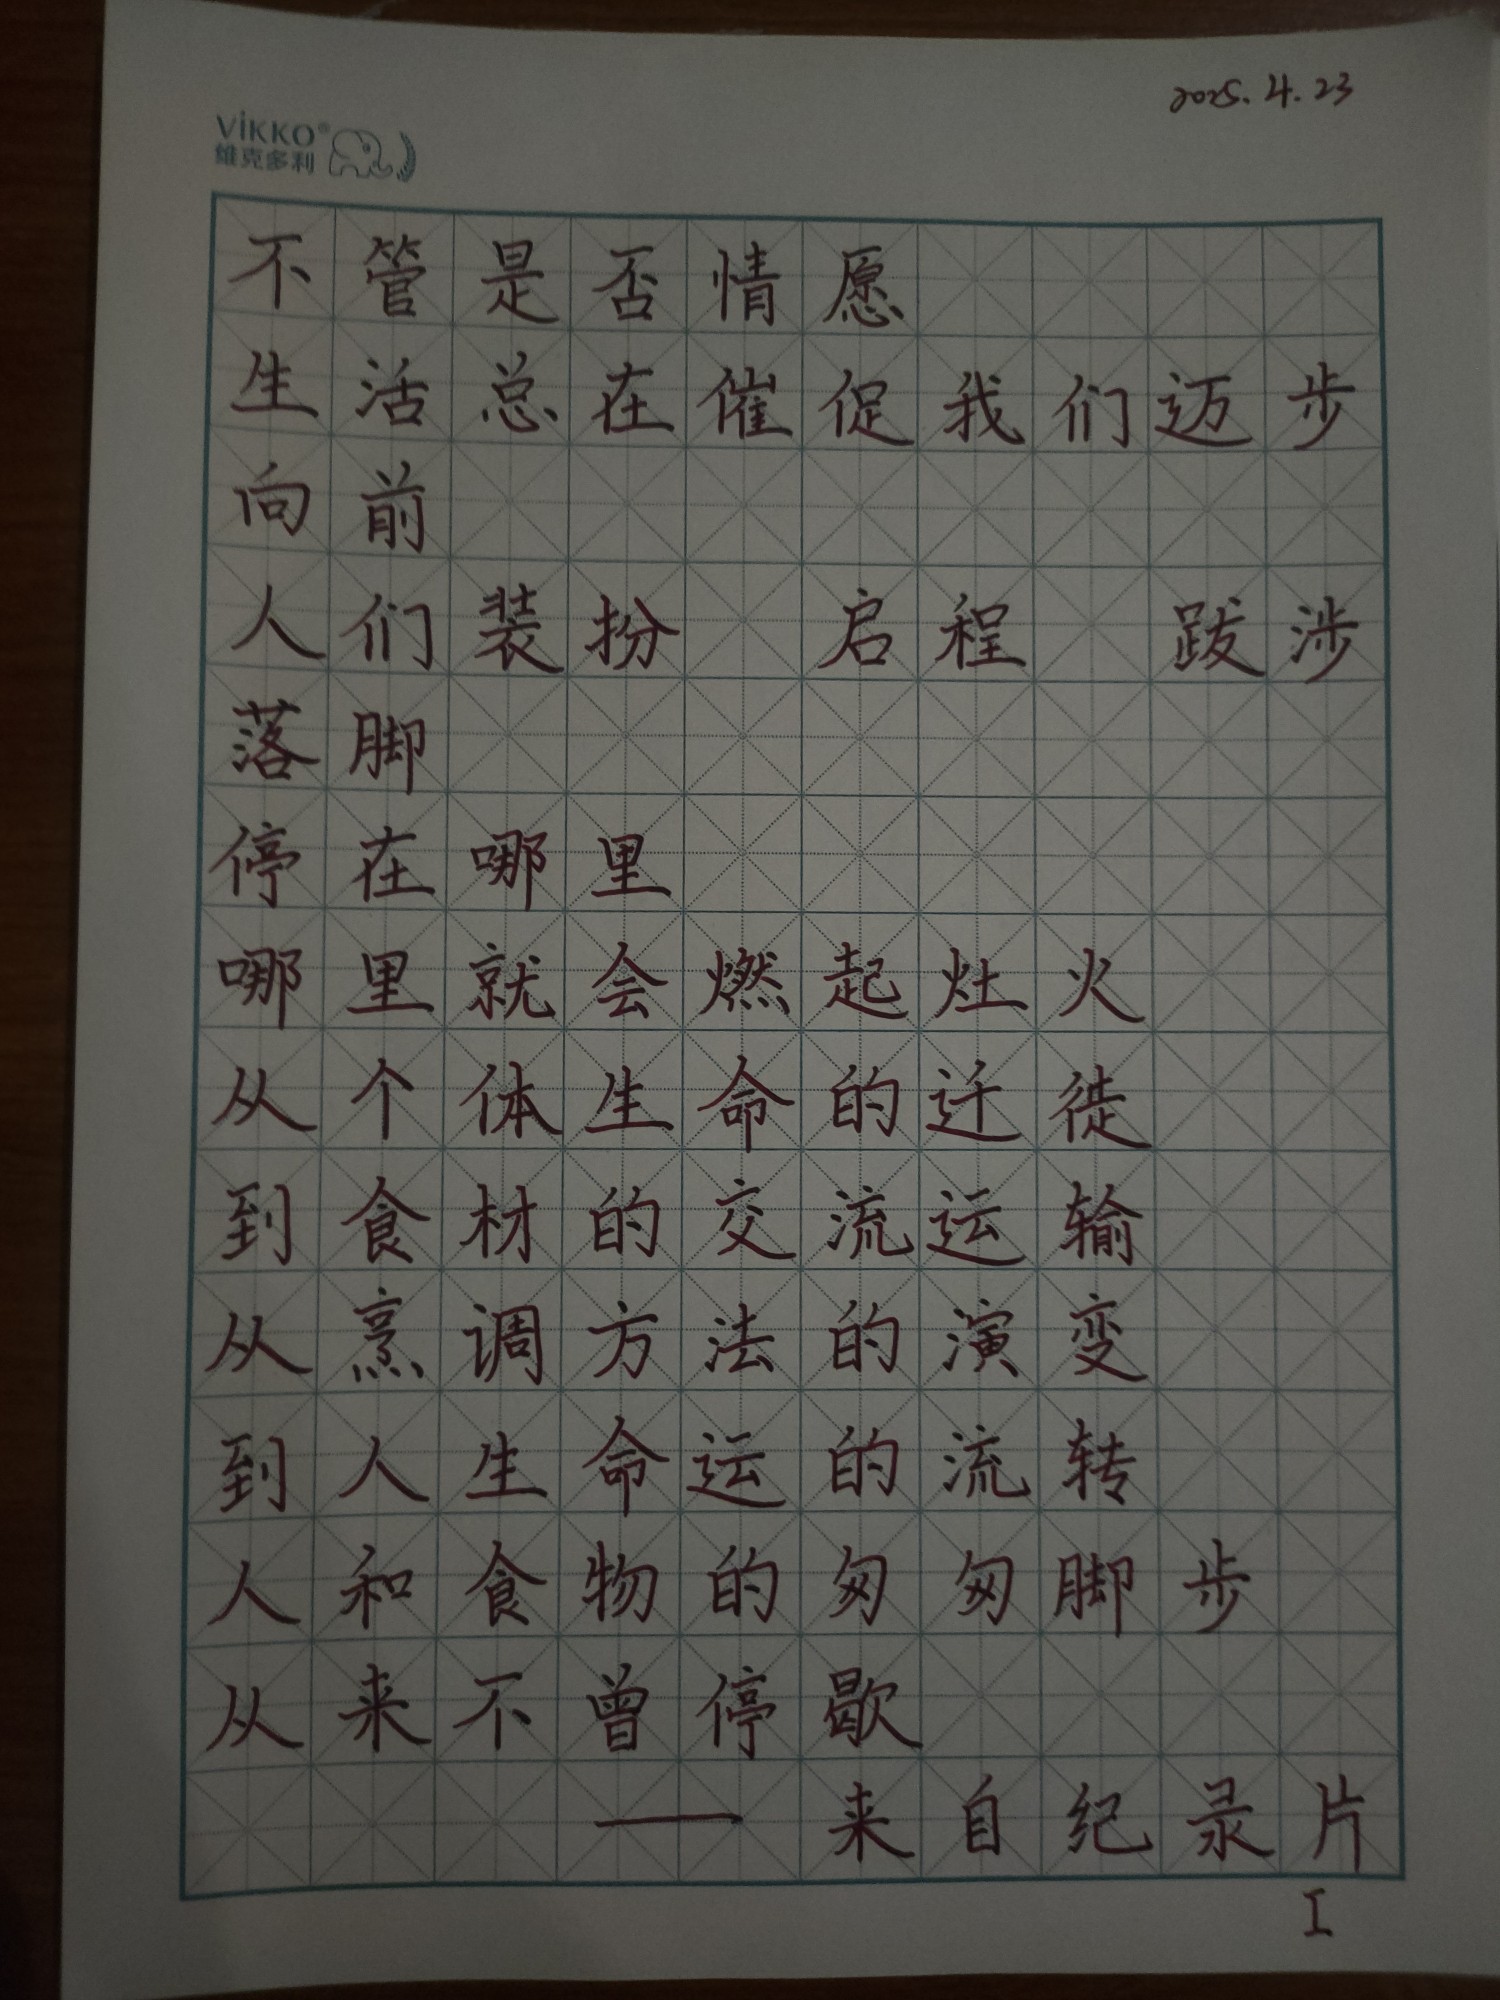 2025.4.23
VIKKO®
维克多利
不管是否情愿
生活总在催促我们迈步
向前
人们装扮 启程 跋涉
落脚
停在哪里
哪里就会燃起灶火
从个体生命的迁徙
到食材的交流运输
从烹调方法的演变
到人生命运的流转
人和食物的匆匆脚步
从来不曾停歇
——来自纪录片
I